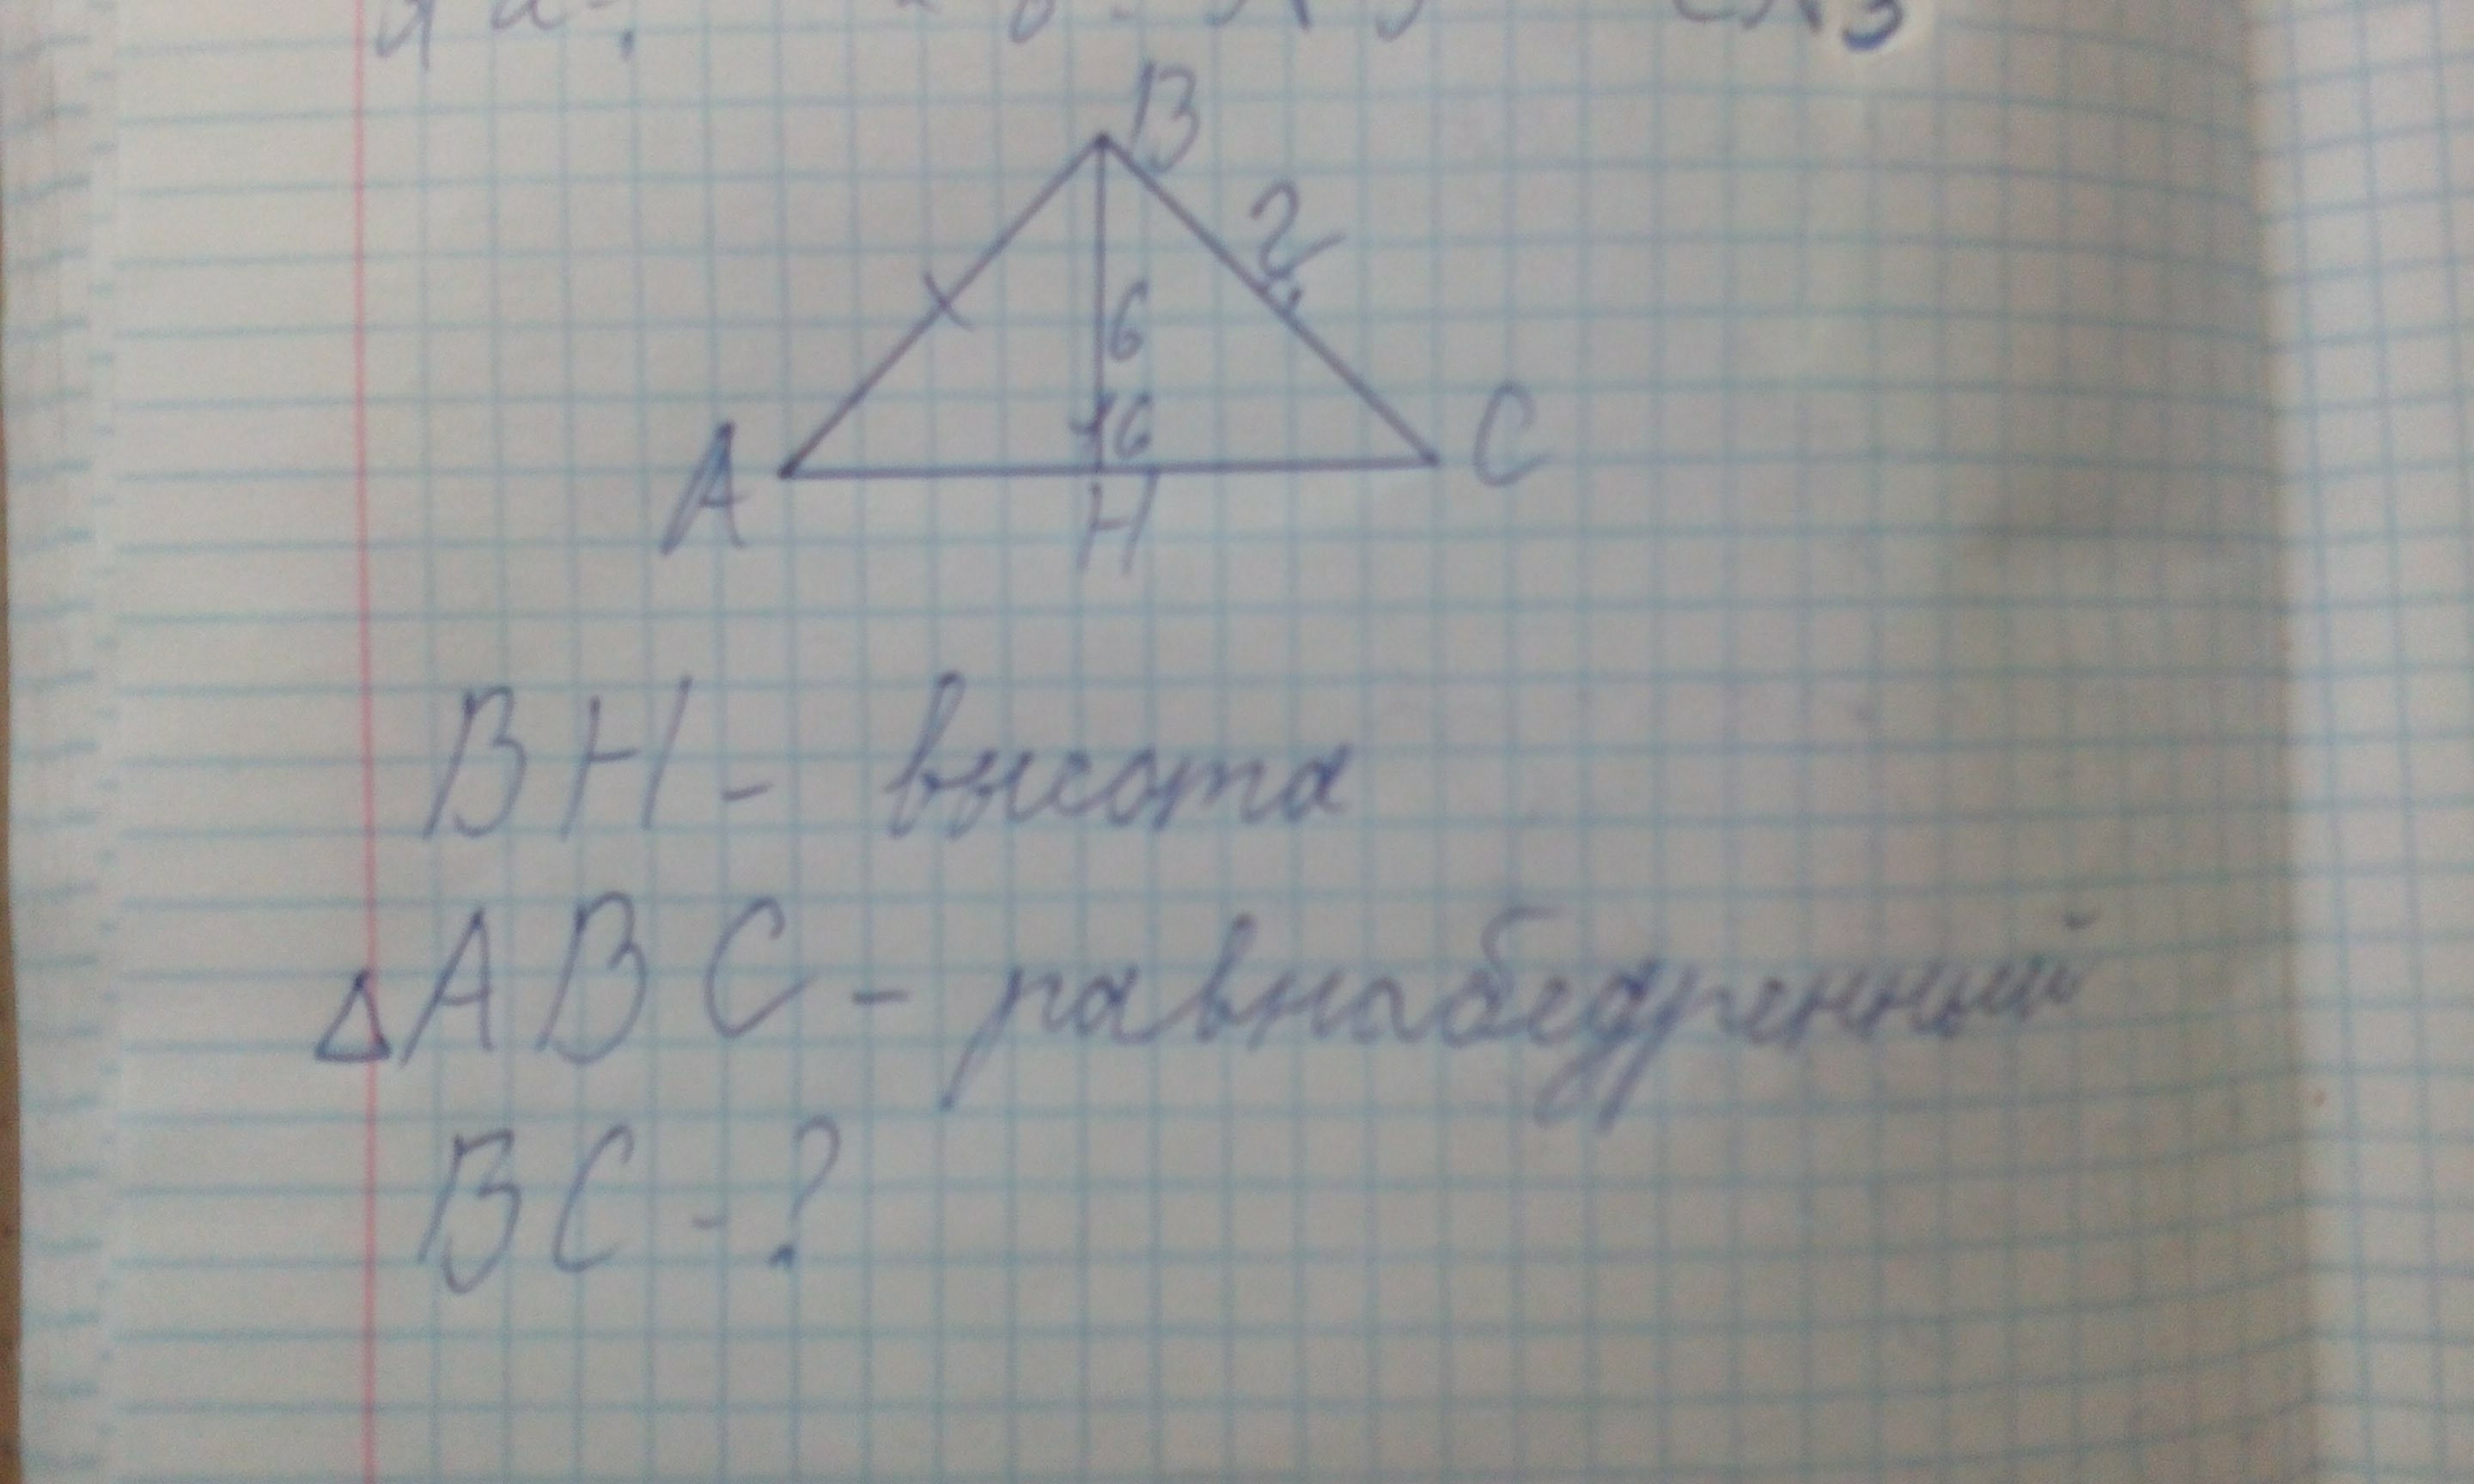 B
?
6
16
A
C
H
BH - высота
△ABC - равнобедренный
BC - ?